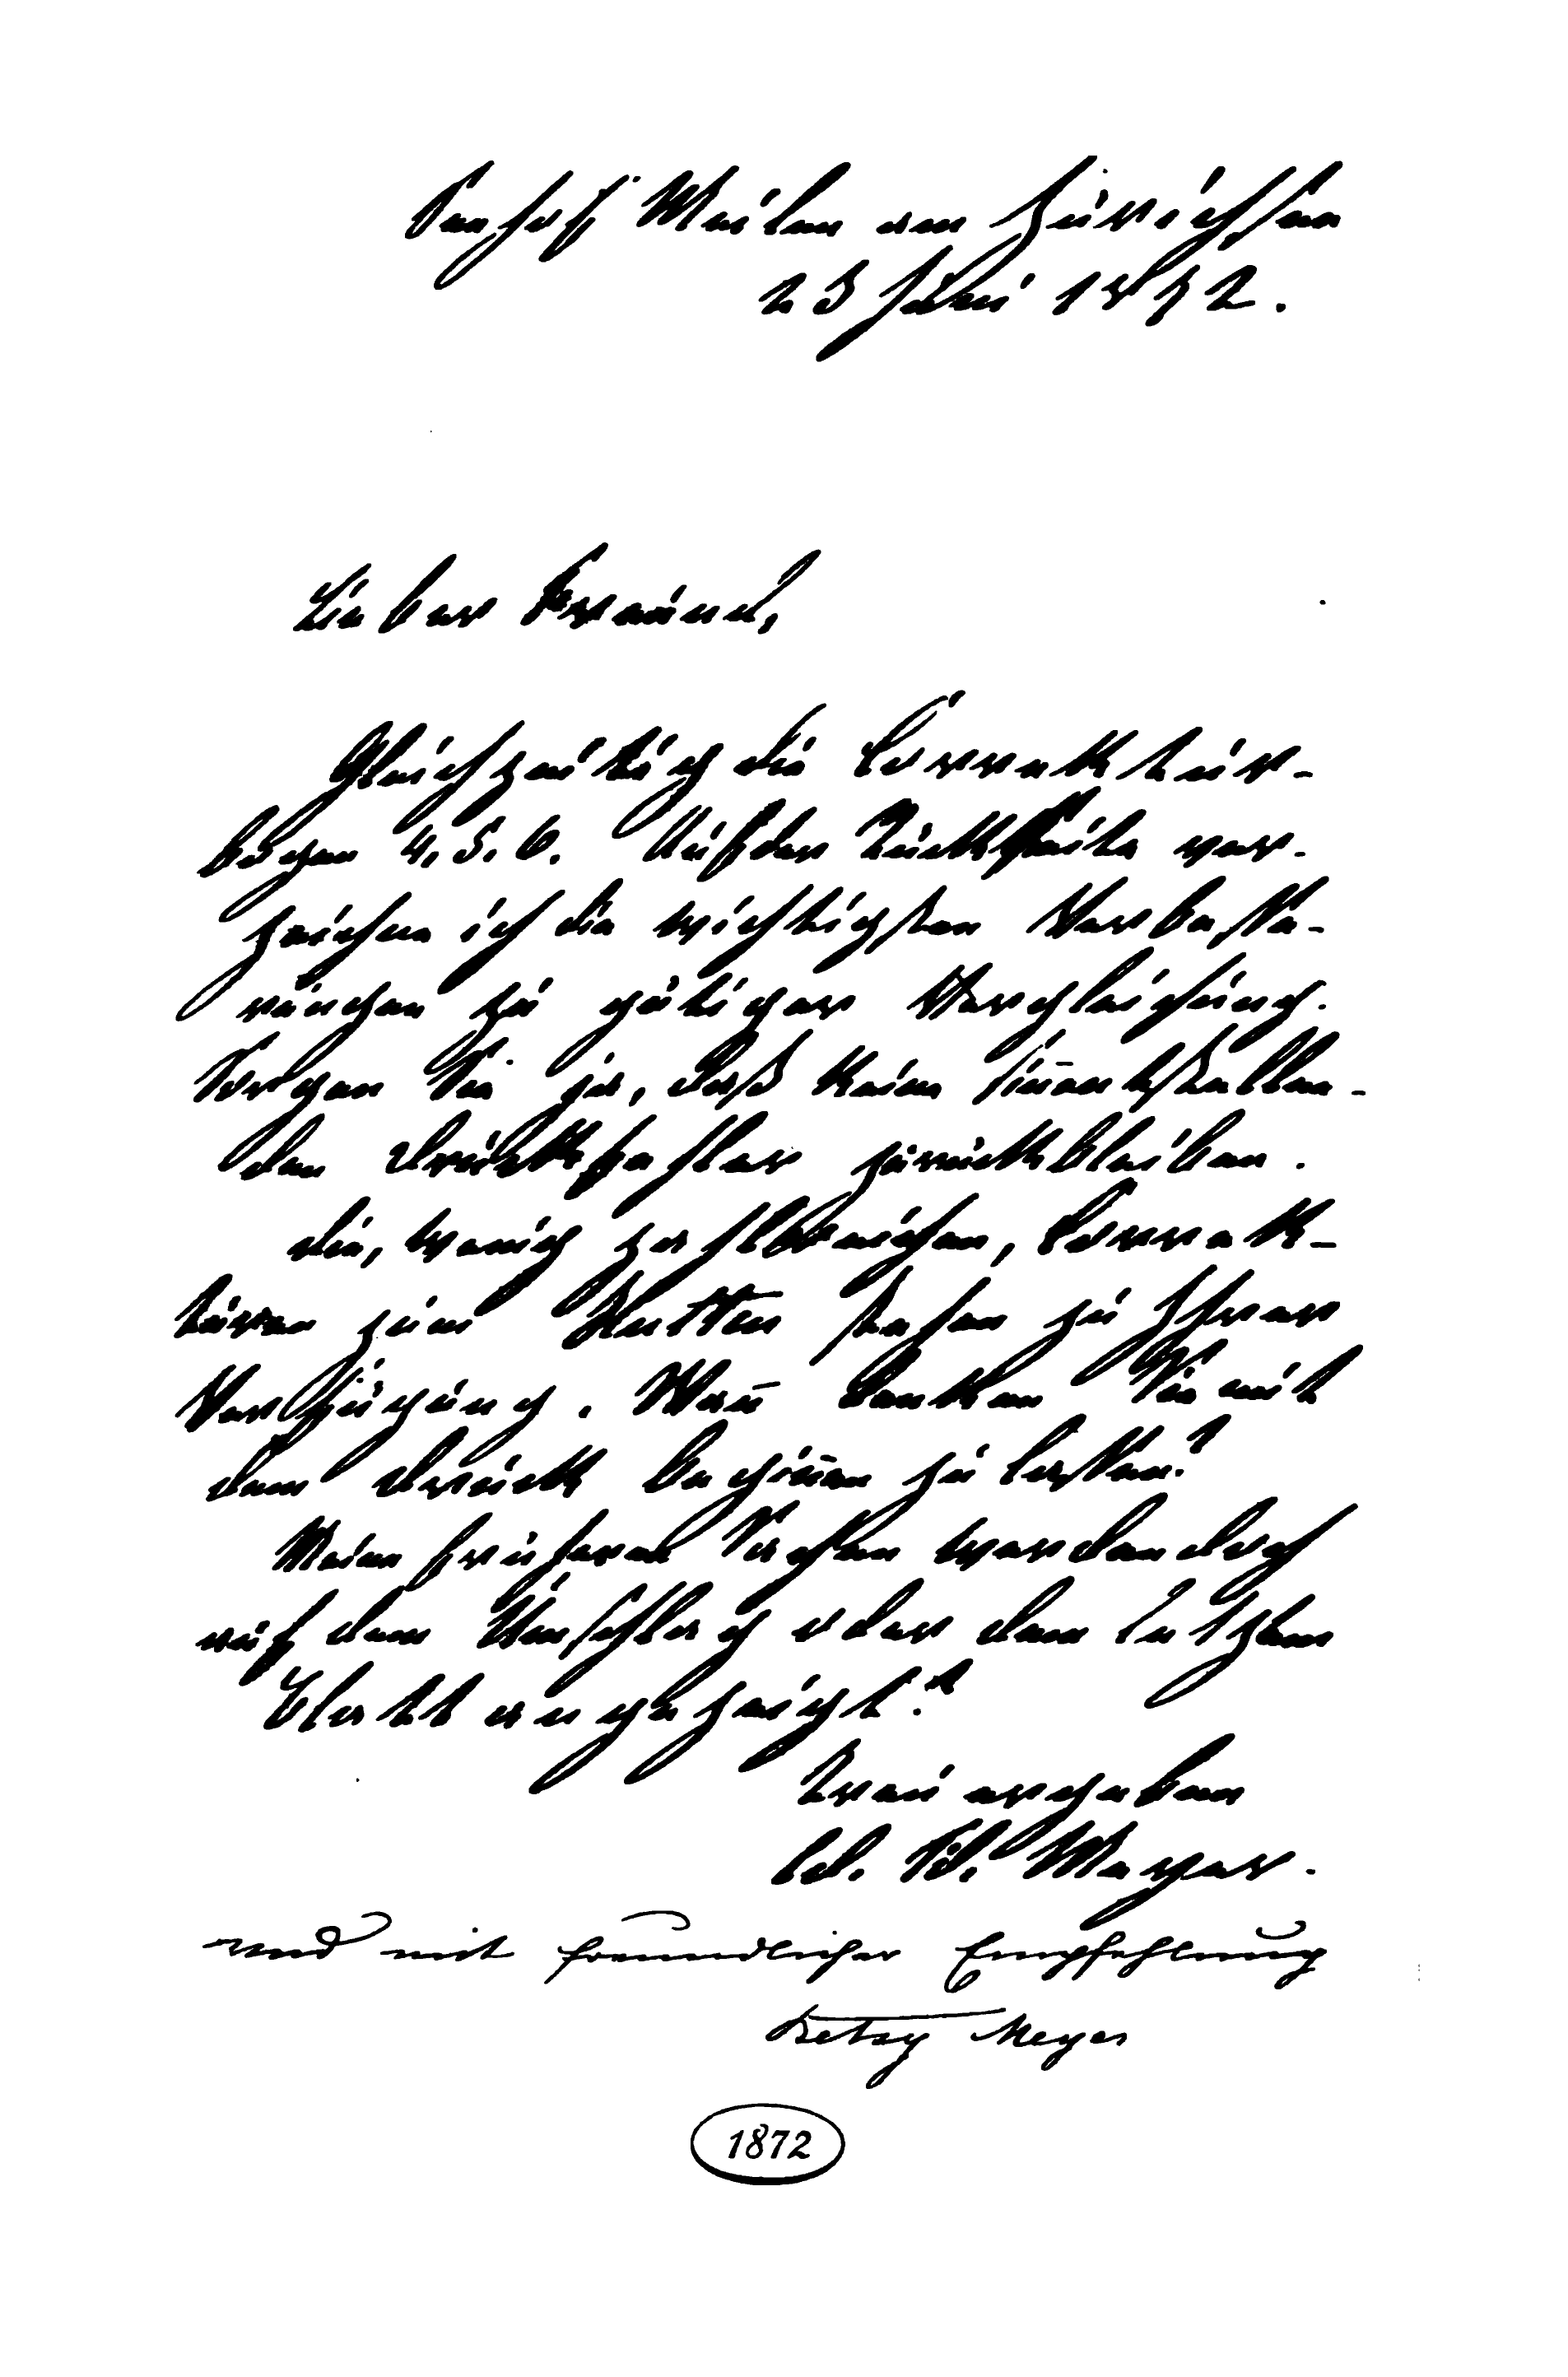 Seehof Meilen am Zürichsee
25 1872.
Lieber Freund,
Gleichzeitig die Correktur-
bogen 4. 5. 6. Auf der Rückseite ver-
zeichne ich die wichtigsten Verbesse-
rungen zu gütiger Vergleichung.
Sorgen Sie ja, daß keine sin̄entstellen-
den Druckfehler zurückbleiben.
Die, wenig zahlreichen, Correk-
turen zum Hutten stehen zu Ihrer
Verfügung. Wan̄ denken Sie mit
dem Druck begin̄en zu lassen?
Meine früheren Sachen werden doch
auf dem Umschlag oder dem letzten
Blatt angezeigt?
Treu ergeben
Cd. Fd. Meyer.
und mit freundlicher Empfehlung
Betsy Meyer
1872